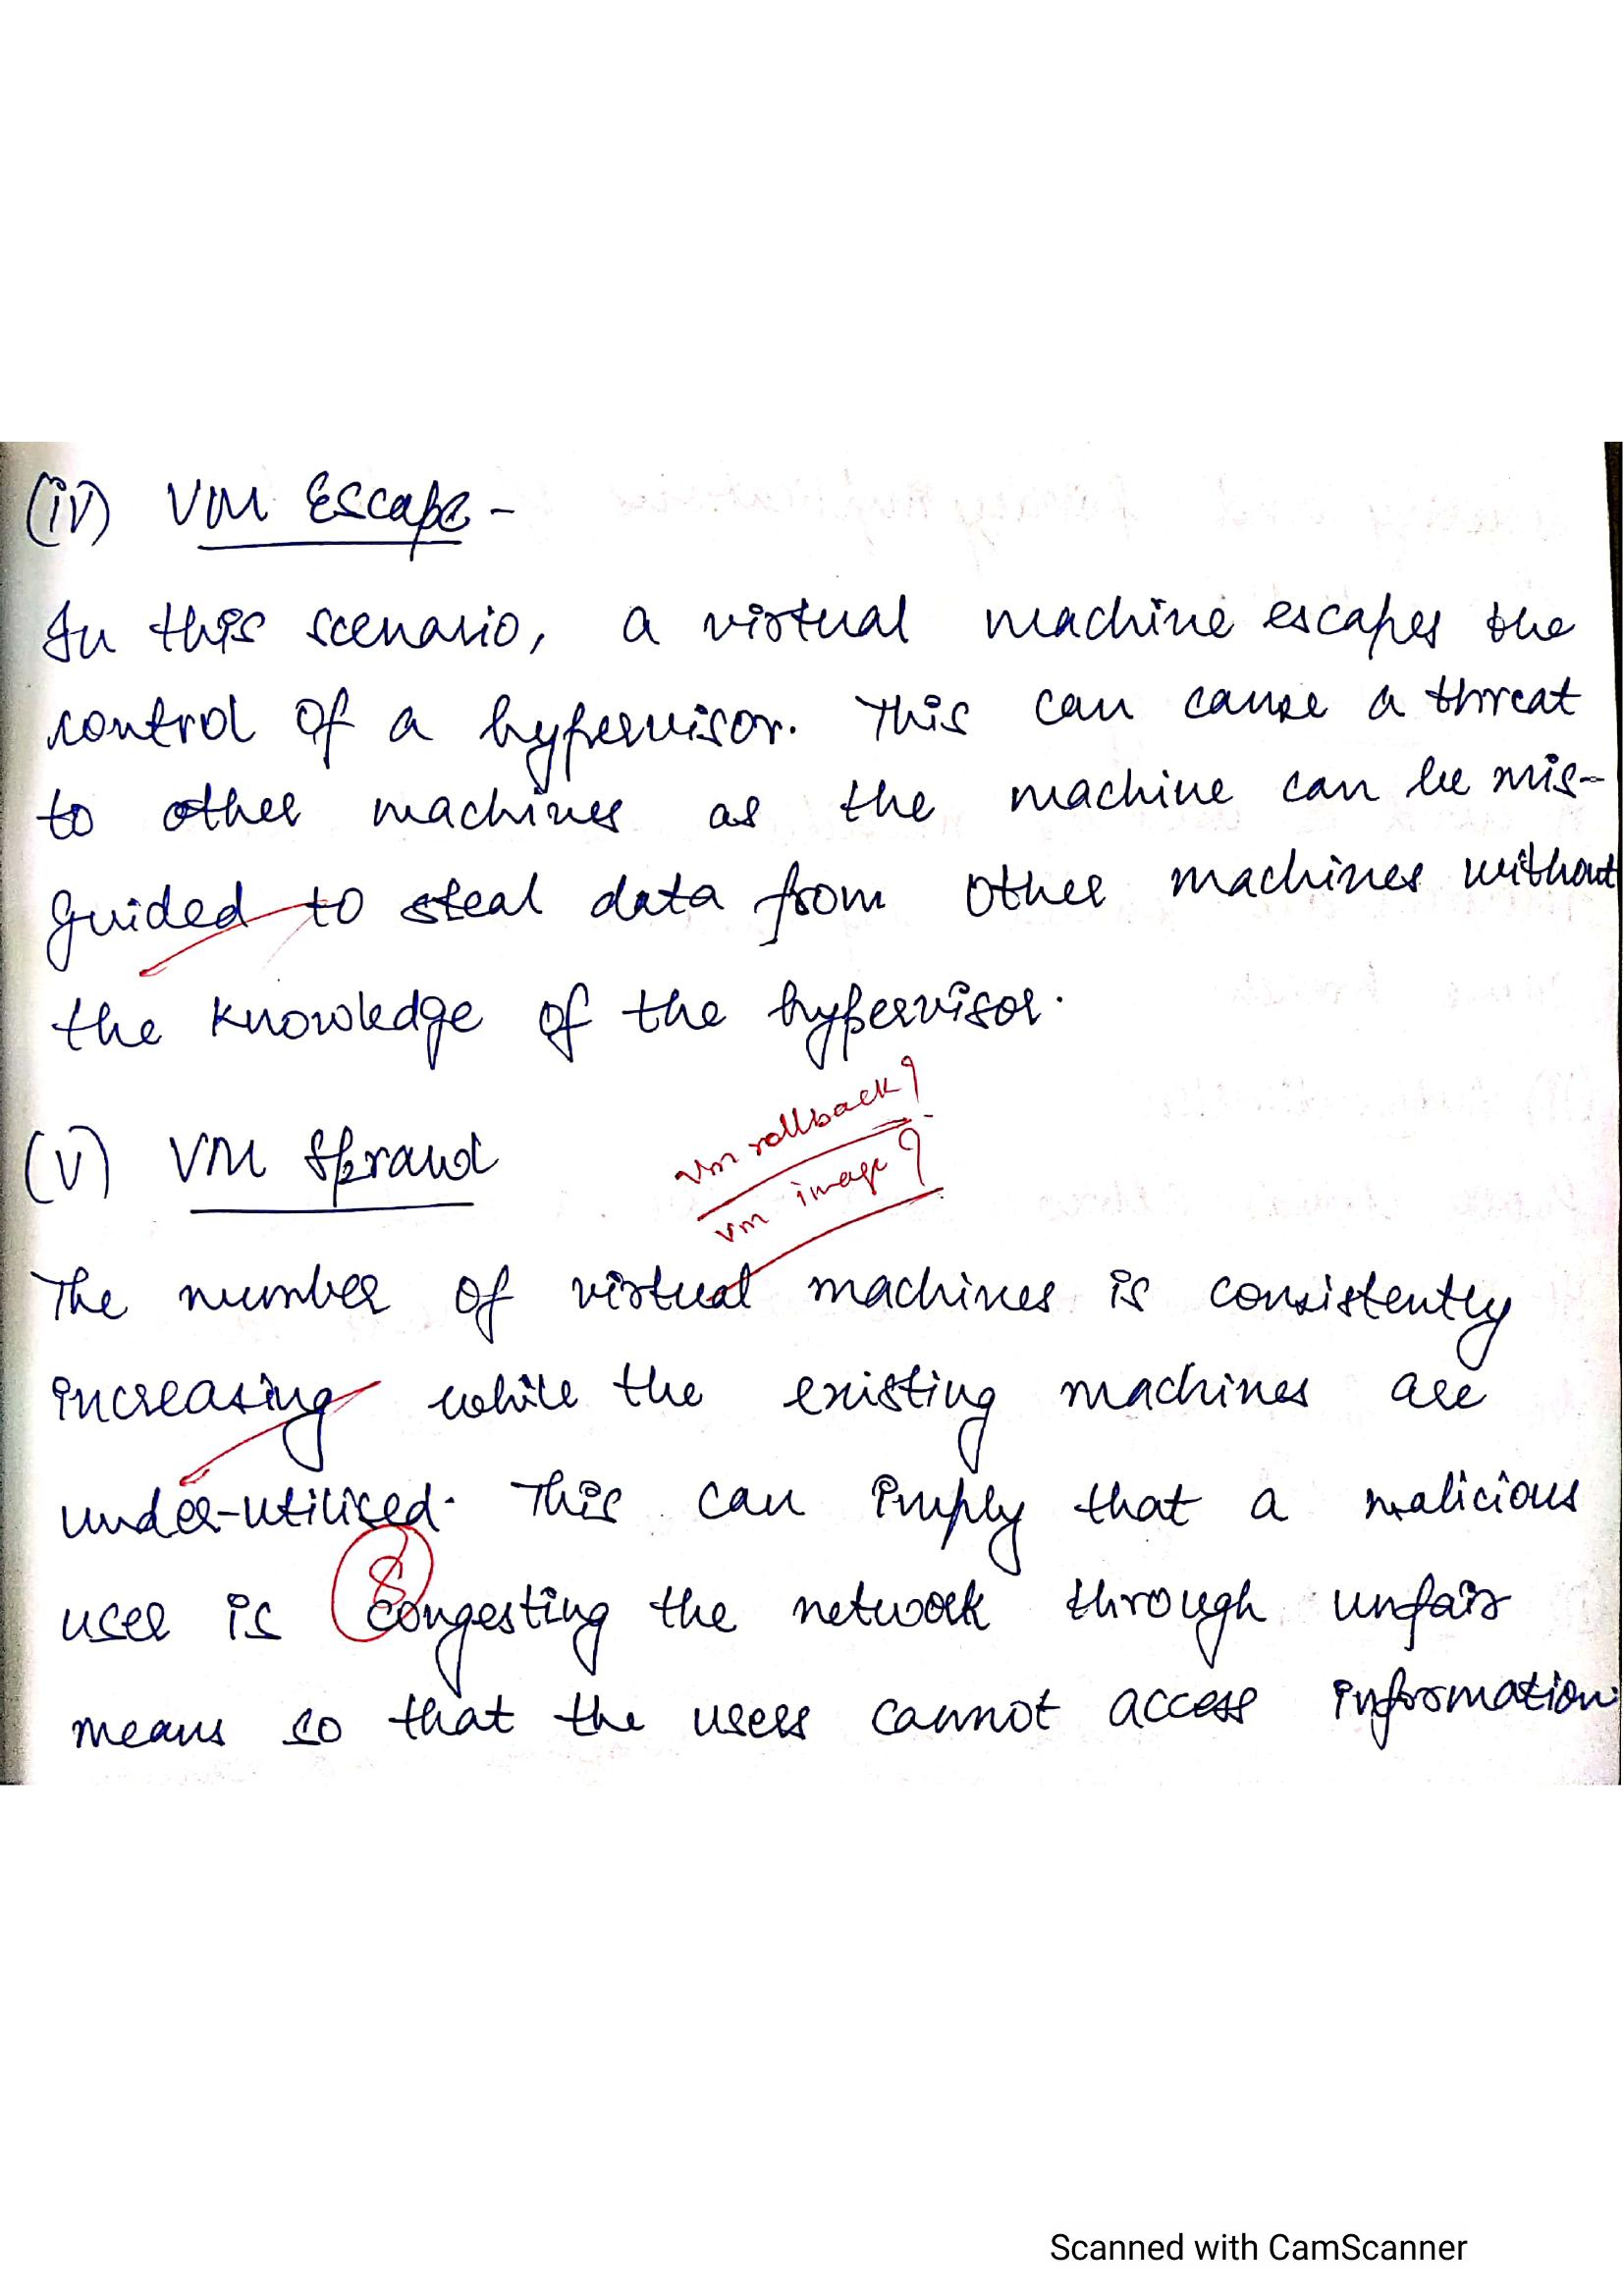 (iv) VM Escape -
In this scenario, a virtual machine escapes the
control of a hypervisor. This can cause a threat
to other machines as the machine can be mis-
guided to steal data from other machines without
the knowledge of the hypervisor.
VM rollback?
(V) VM Sprawl
VM image?
The number of virtual machines is consistently
increasing while the existing machines are
under-utilised. This can imply that a malicious
8
user is congesting the network through unfair
means so that the users cannot access information.
Scanned with CamScanner